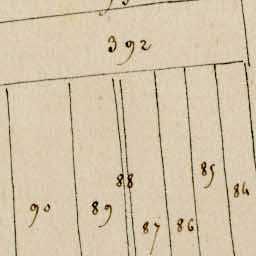 392
90 89 88 87 86 85 84